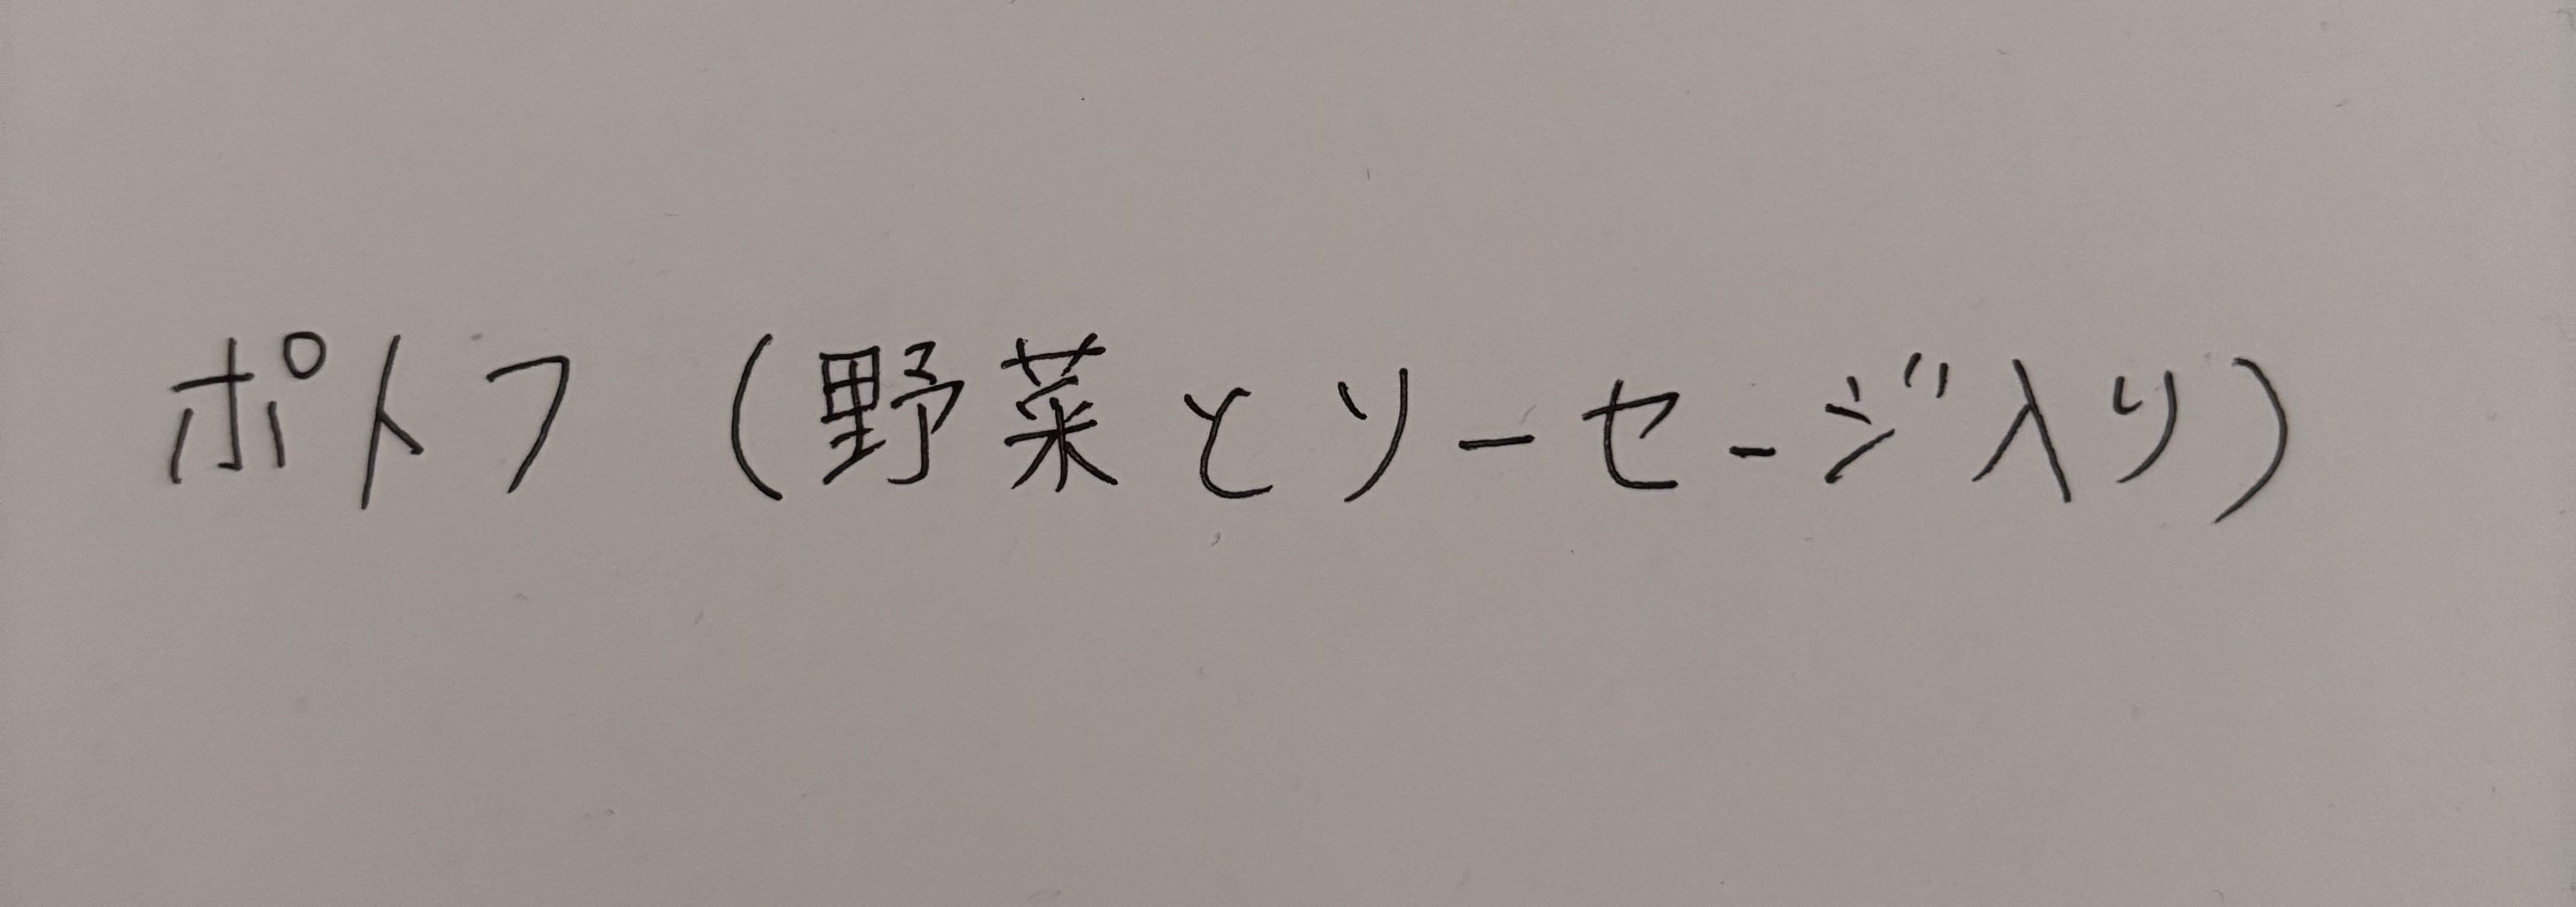 ポトフ（野菜とソーセージ入り）